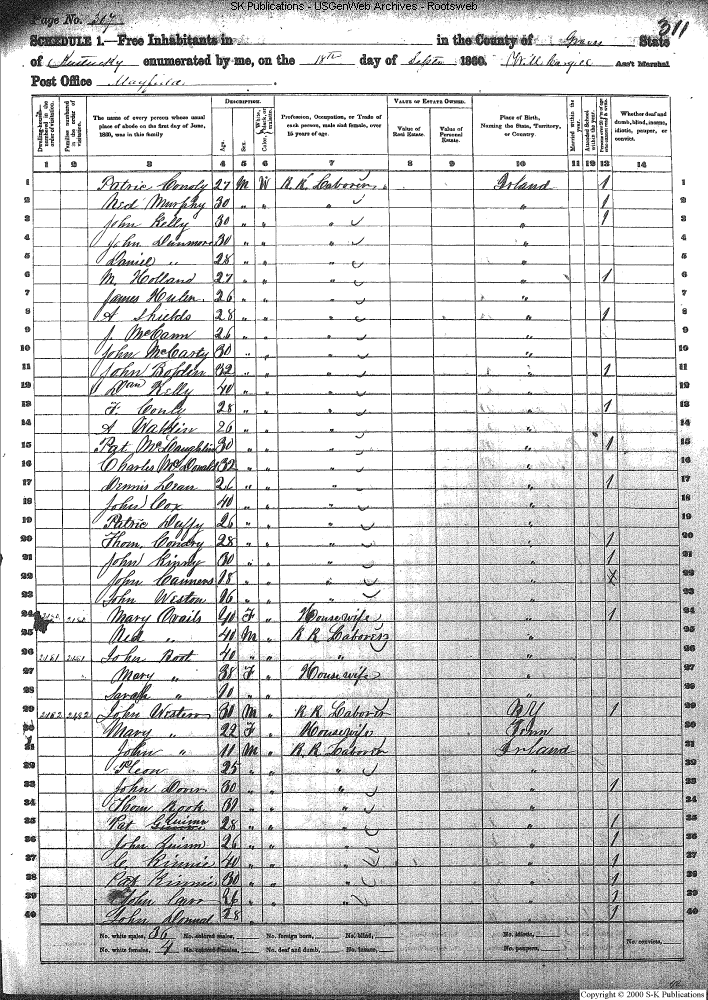 SK Publications - USGenWeb Archives - Rootsweb
Page No. 307
311
SCHEDULE 1.—Free Inhabitants in in the County of Graves State
of Kentucky enumerated by me, on the 18th day of Septr 1860. Ass't Marshal
Post Office Mayfield
Dwelling-houses numbered in the order of visitation.
Families numbered in the order of visitation.
The name of every person whose usual place of abode on the first day of June, 1860, was in this family
DESCRIPTION.
Age.
Sex.
Color, White, black, or mulatto.
Profession, Occupation, or Trade of each person, male and female, over 15 years of age.
VALUE OF ESTATE OWNED.
Value of Real Estate.
Value of Personal Estate.
Place of Birth, Naming the State, Territory, or Country.
Married within the year.
Attended School within the year.
Whether deaf and dumb, blind, insane, idiotic, pauper, or convict.
1 2 3 4 5 6 7 8 9 10 11 12 13 14
1 Patric Conoly 27 M W R. R. Laborer Irland 1 1
2 Ned Murphy 30 " " " " 1 2
3 John Kelly 30 " " " " 1 3
4 John Dunmore 30 " " " " 4
5 Daniel " 28 " " " " 5
6 M. Holland 27 " " " " 1 6
7 James Hulen 26 " " " " 7
8 A Shields 28 " " " " 1 8
9 J. McCann 26 " " " " 9
10 John McCarty 30 " " " " 10
11 John Bolden 32 " " " " 1 11
12 Dan Kelly 40 " " " " 12
13 F. Conly 28 " " " " 1 13
14 A Watkin 26 " " " " 14
15 Pat McLaughlin 30 " " " " 1 15
16 Charles McDonald 32 " " " " 16
17 Dennis Dean 26 " " " " 1 17
18 John Cox 40 " " " " 18
19 Patric Duffy 26 " " " " 19
20 Thom. Condry 28 " " " " 1 20
21 John Kinny 30 " " " " 1 21
22 John Canners 18 " " " " 22
23 John Weston 16 " " " " 23
24 Mary Vrails 40 F " Housewife " 1 24
25 Ned " 40 M " R R Laborer " 25
26 2181 2181 John Root 40 " " " " 26
27 Mary " 38 F " Housewife " 27
28 Sarah " 10 " " " 28
29 2182 2182 John Western 30 M " R R Laborer N Y 1 29
30 Mary " 22 F " Housewife Tenn 30
31 John " 11 M " R. R. Laborer Irland 31
32 25 " " " " 32
33 John Dorer 30 " " " " 1 33
34 Thom Rook 31 " " " " 34
35 Pat Quinn 28 " " " " 1 35
36 John Quinn 26 " " " " 1 36
37 C. Kinnie 40 " " " " 1 37
38 Pat Kinnie 30 " " " " 1 38
39 John Carr 26 " " " " 1 39
40 John Donnal 28 " 1 40
No. white males, 36 No. colored males, No. foreign born, No. blind, No. idiotic, No. convicts,
No. white females, 4 No. colored females, No. deaf and dumb, No. insane, No. paupers,
Copyright © 2000 S-K Publications